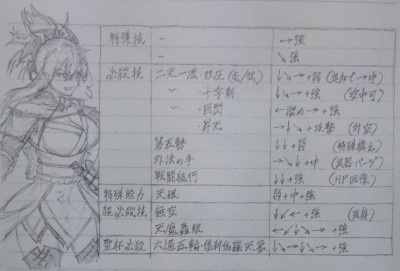 特殊技 - →強
- ↘強
必殺技 二天一流・邪圧(走/弦) ↓↘→+弱 (追加で→中)
〃 ・十字斬 ↓↘→+強 (空中可)
〃 ・巨閃 ←溜め→+強
〃 ・昇天 →↓↘+攻撃 (対空)
第五勢 ↓↓+弱 (特殊構え)
外法の手 →↘↓+中 (武器パージ)
戦闘続行 ↓↓+強 (HP回復)
特殊能力 天眼 弱+中+強
超必殺技 無空 ↓↙←+強 (投身)
天魔蟲眼 ←↙↓↙←+強
聖杯必殺 六道五輪・倶利伽羅天象 ↓↘→↓↘→+強